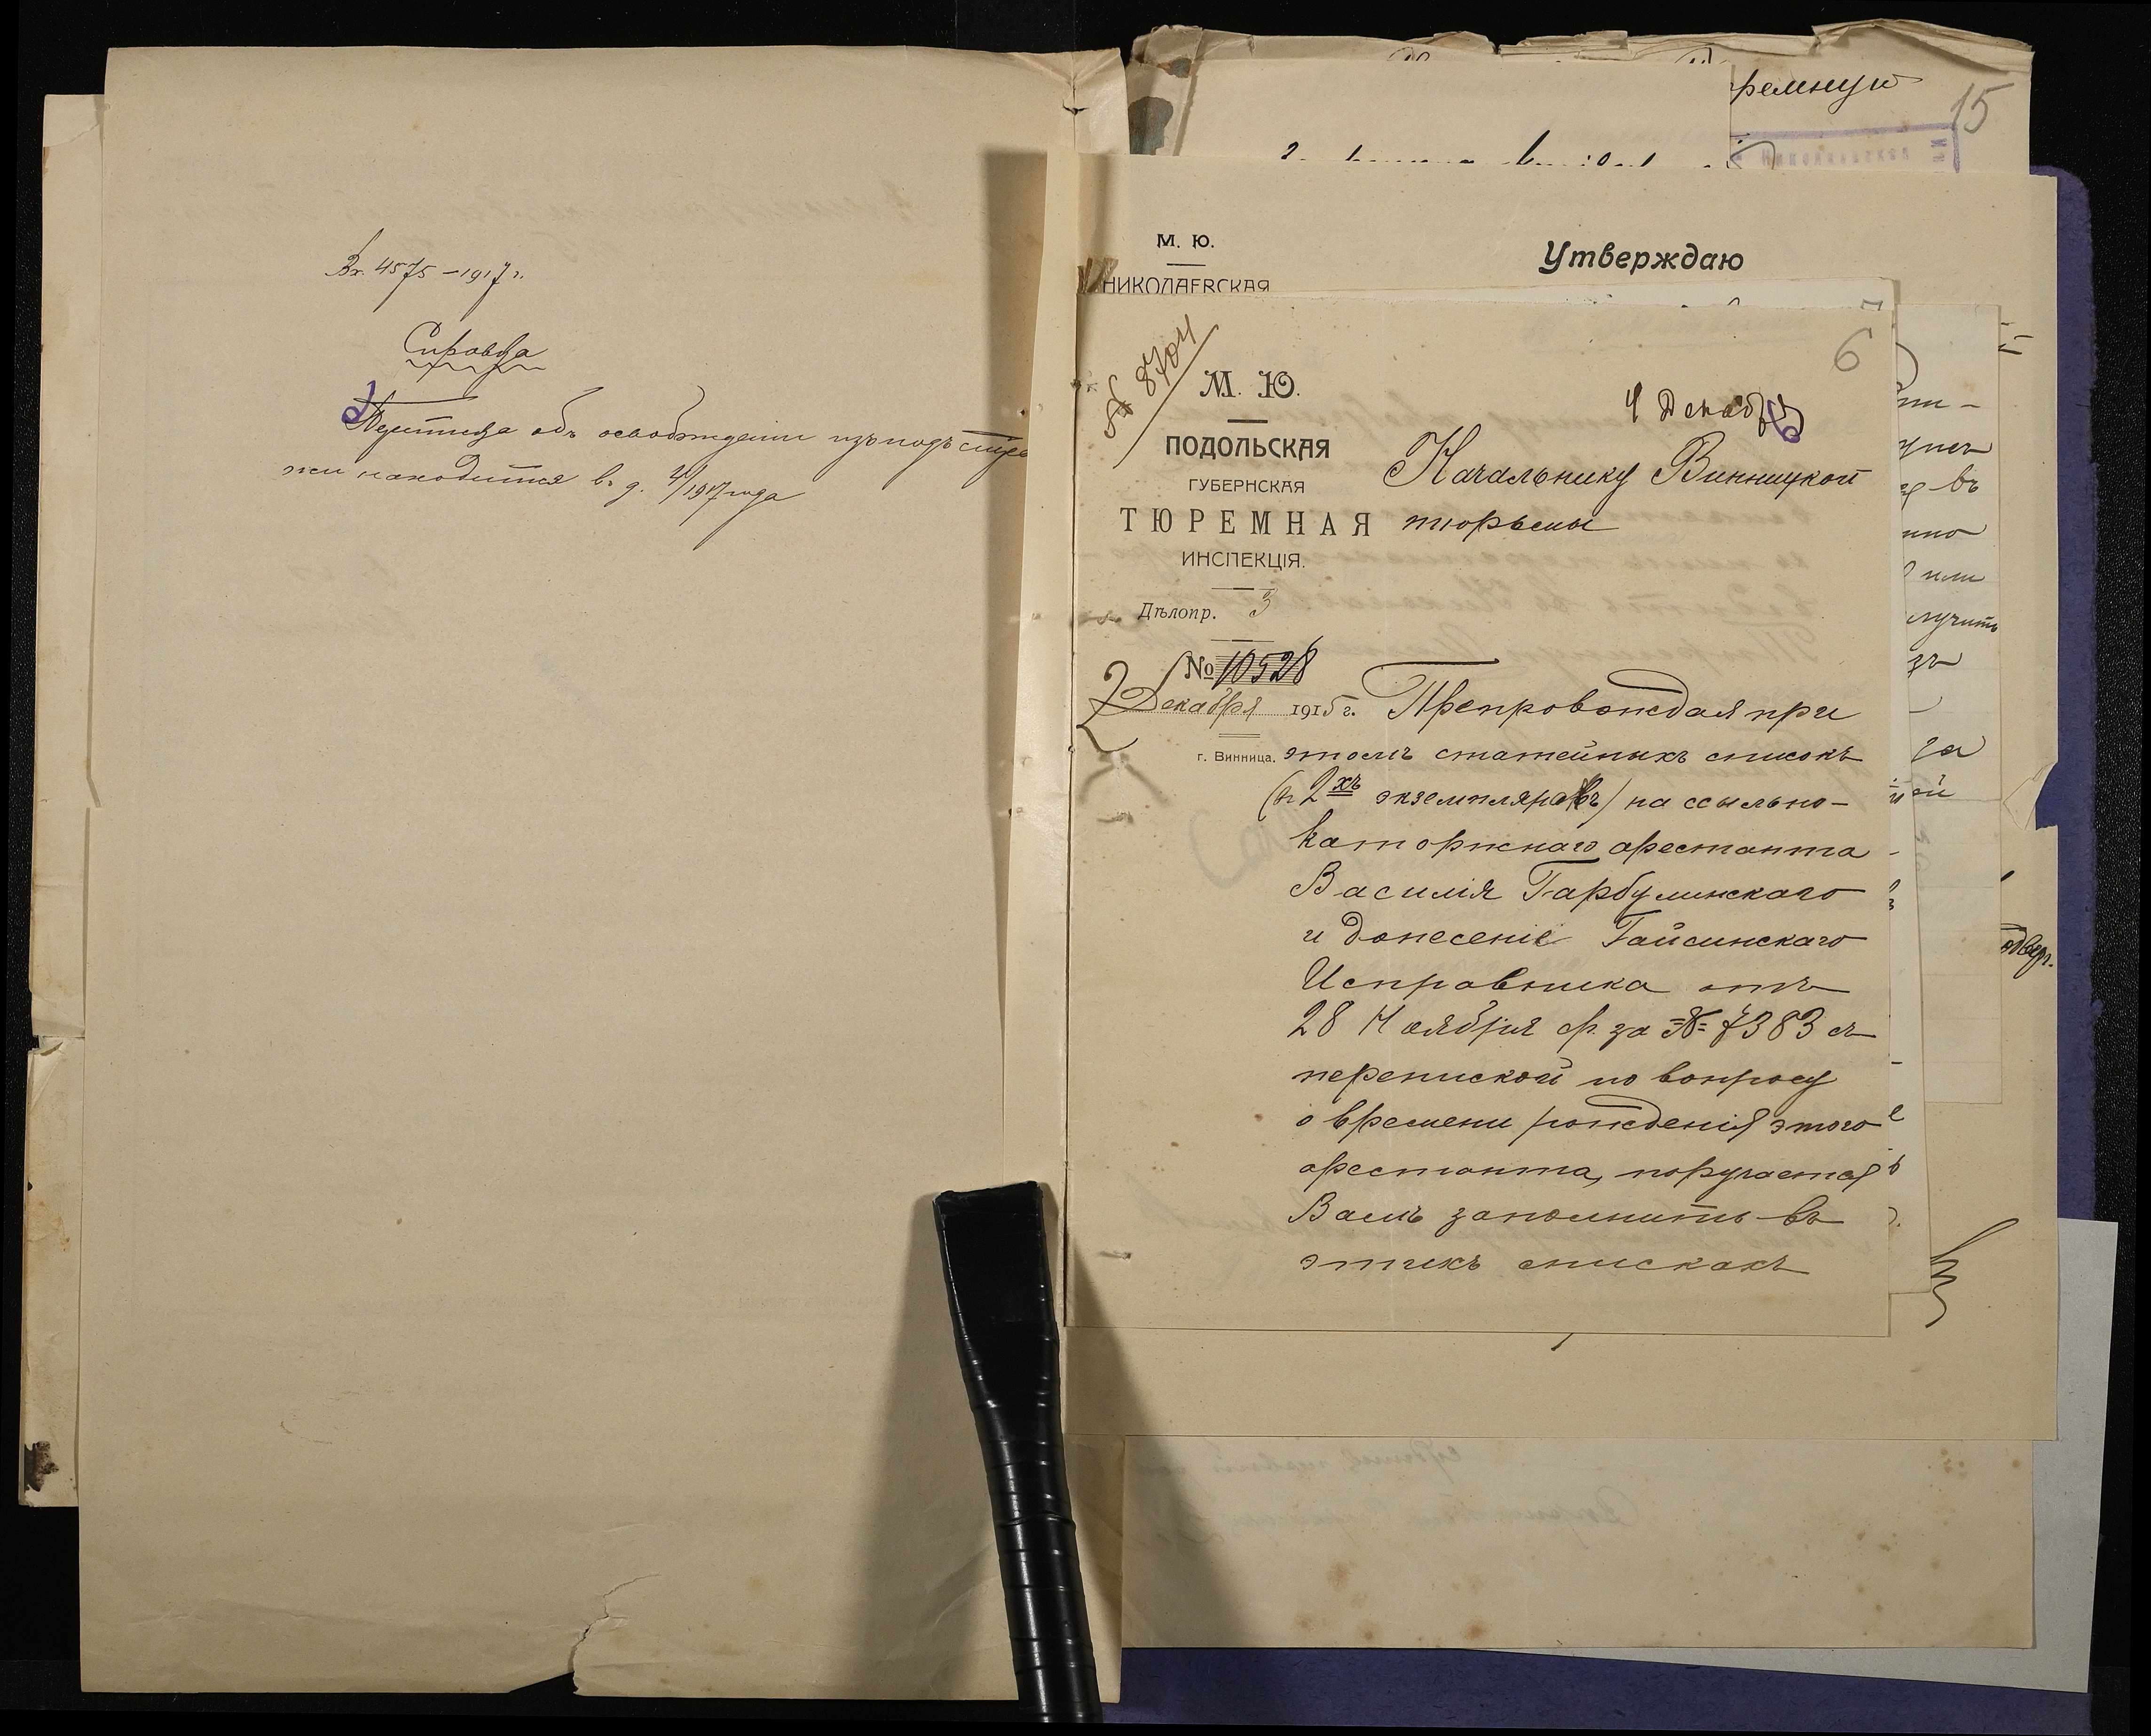 Вх. 4575 – 1917 г.
Справка
Переписка объ освобожденіи изъ подъ стра
жи находится въ д. 4/1917 года
ремную
15
М. Ю.
НИКОЛАЕВСКАЯ
Утверждаю
№ 8704
6
М. Ю.
ПОДОЛЬСКАЯ
ГУБЕРНСКАЯ
ТЮРЕМНАЯ
ИНСПЕКЦІЯ.
Дѣлопр. 3
№ 10528
2 Декабря 1915 г.
г. Винница.
4 Декаб
Начальнику Винницкой
тюрьмы
Препровождая при
этомъ статейныхъ списокъ
(въ 2хъ экземплярахъ) на ссыльно-
каторжнаго арестанта
Василія Гарбулинскаго
и донесеніе Гайсинскаго
Исправника отъ
28 Ноября с/г. за № 7383 съ
перепиской по вопросу
о времени рожденія этого
арестанта, поручается
Вамъ заполнить въ
этихъ спискахъ
въ
или
лучить
за
ой